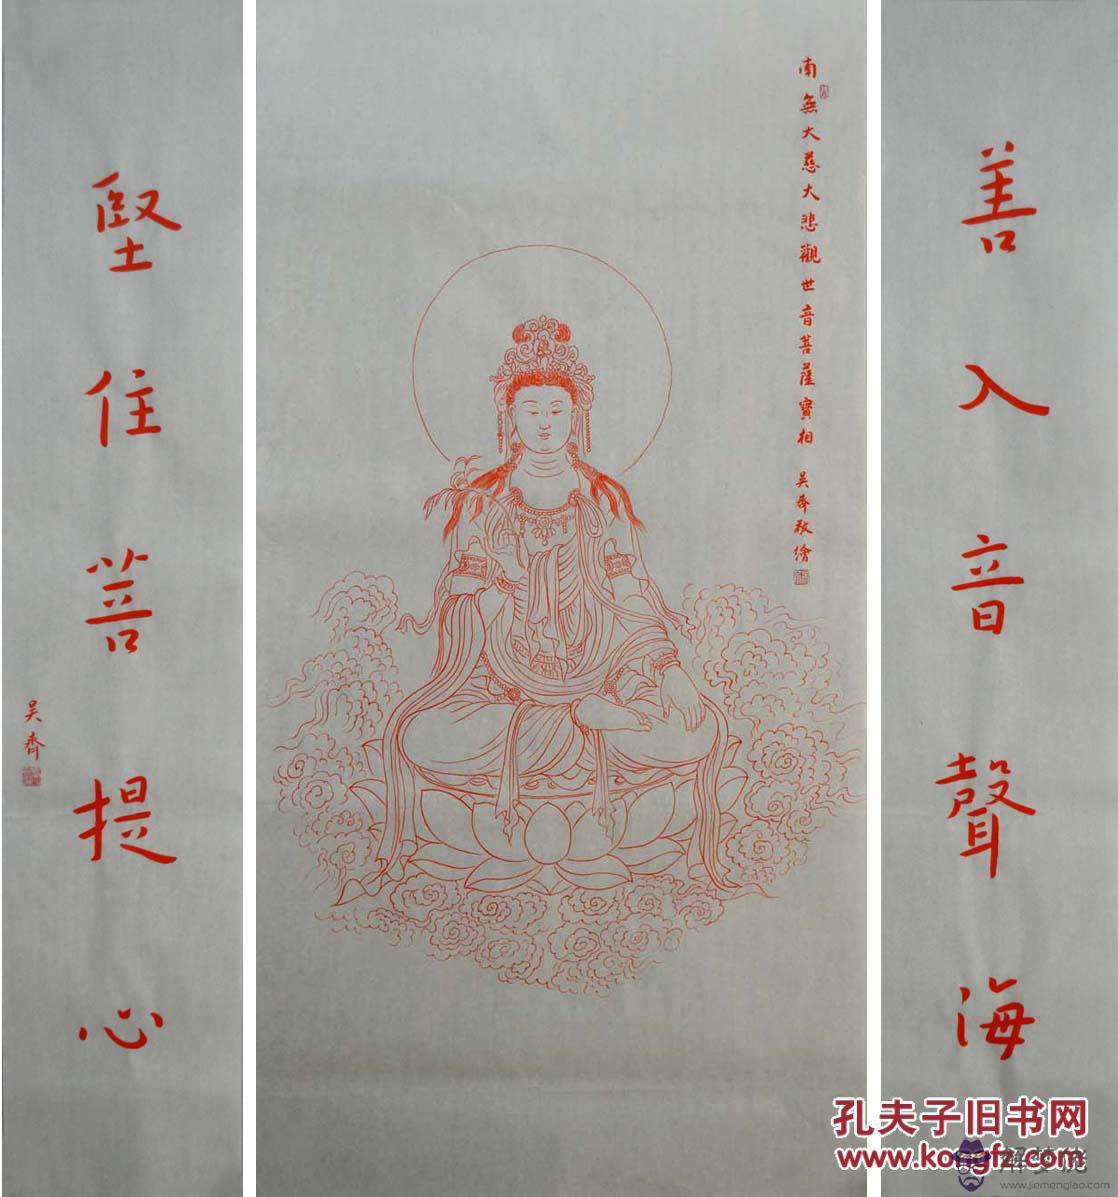 善入音聲海
南無大慈大悲觀世音菩薩寶相 吴齊敬繪
堅住菩提心
吴齊
孔夫子旧书网
www.kongfz.com
解梦佬
www.jiemenglao.com